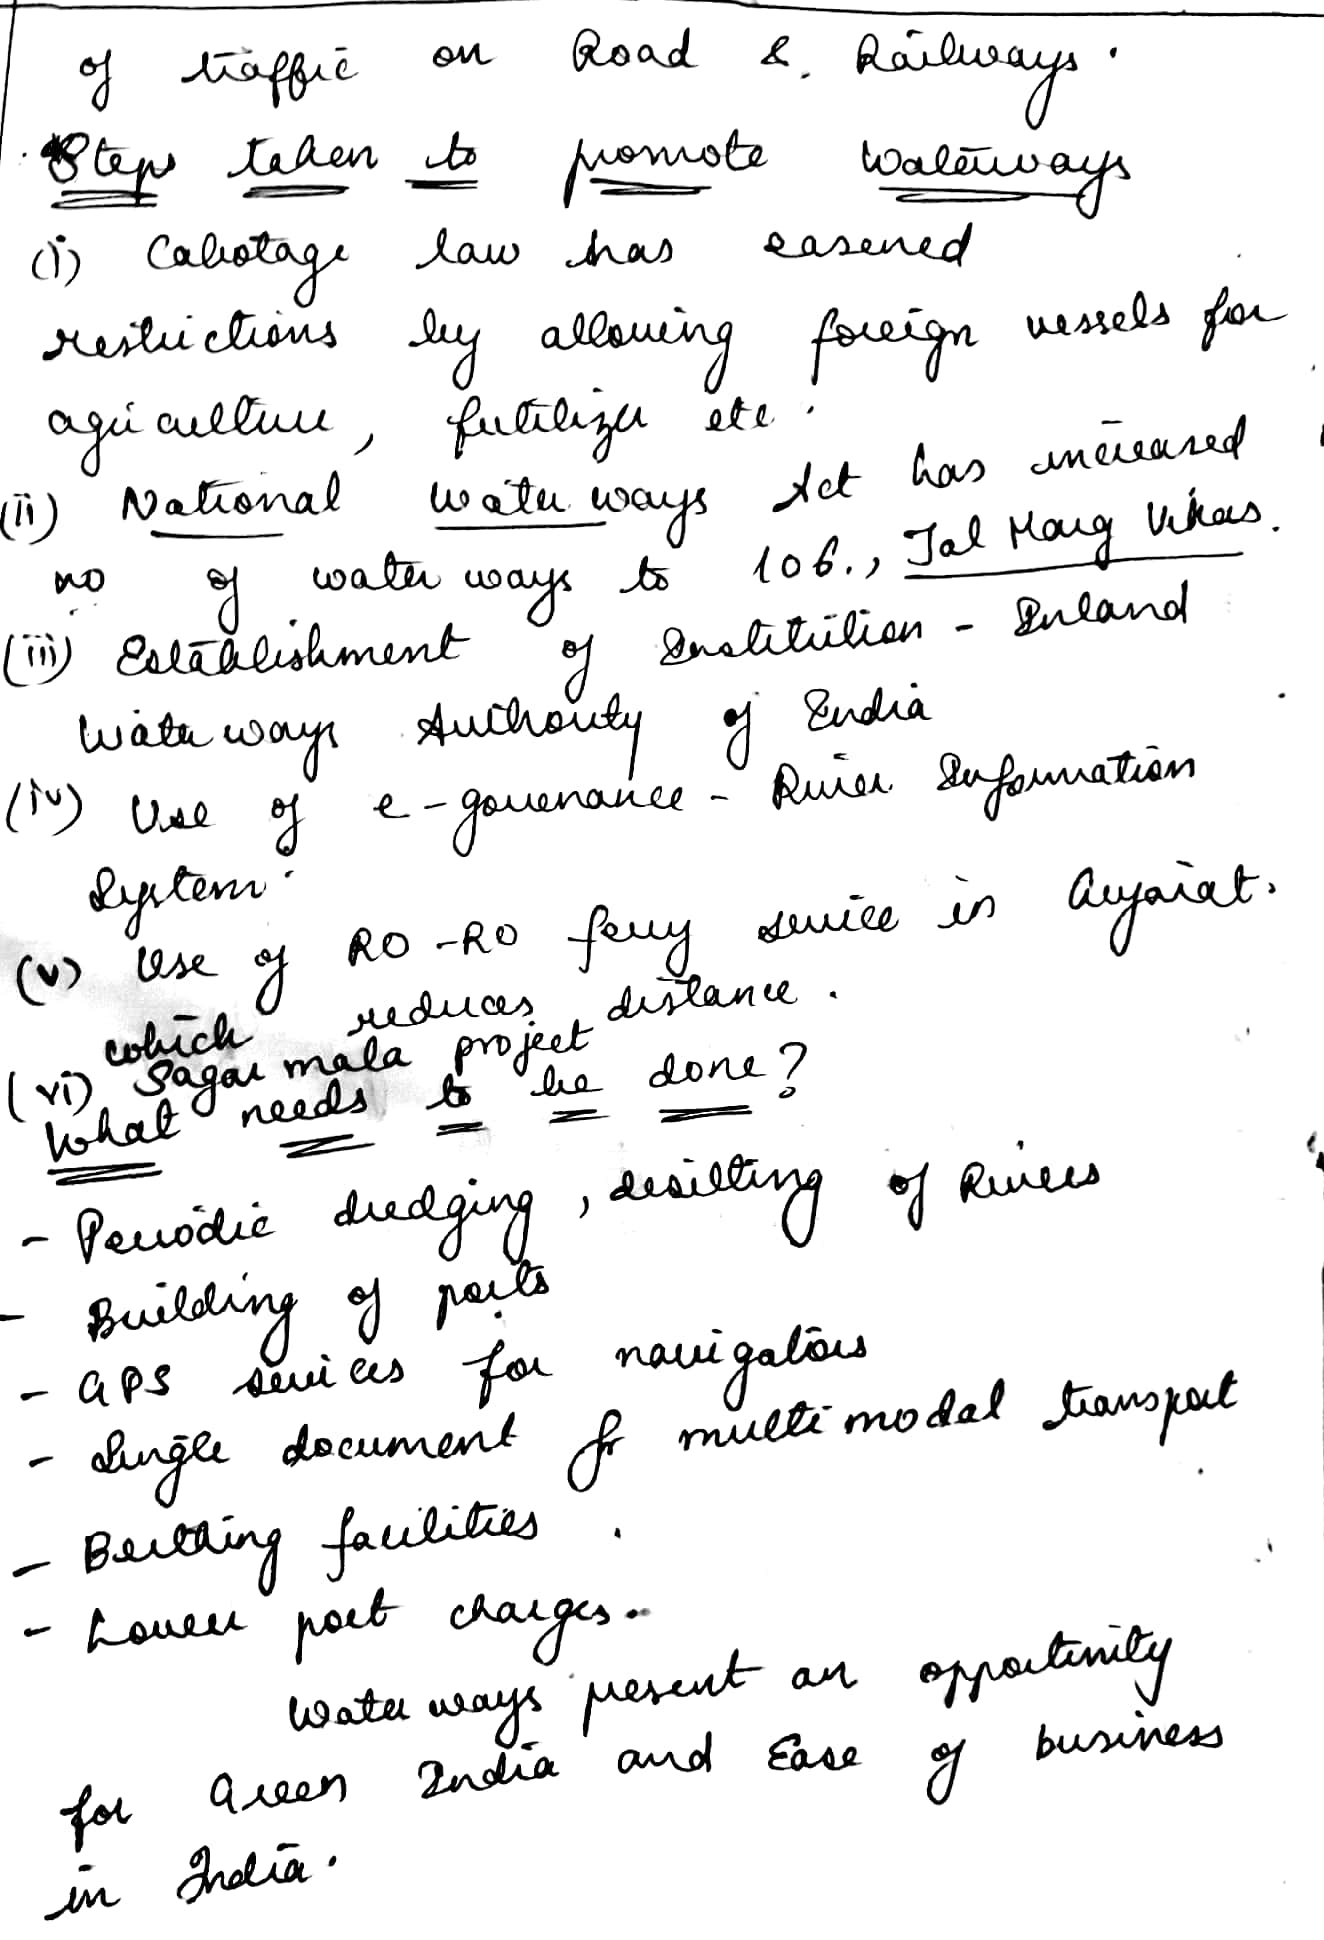 of traffic on Road & Railways.
Steps taken to promote waterways
(i) Cabotage law has easened
restrictions by allowing foreign vessels for
agriculture, fertilizer etc.
(ii) National waterways Act has increased
no of waterways to 106., Jal Marg Vikas.
(iii) Establishment of Institution - Inland
Waterways Authority of India
(iv) Use of e-governance - River Information
System.
(v) Use of RO-RO ferry service in Gujarat.
which reduces distance.
(vi) Sagarmala project
What needs to be done?
- Periodic dredging, desilting of Rivers
- Building of ports
- GPS services for navigators
- Single document for multimodal transport
- Berthing facilities.
- Lower port charges..
Waterways present an opportunity
for Green India and Ease of business
in India.